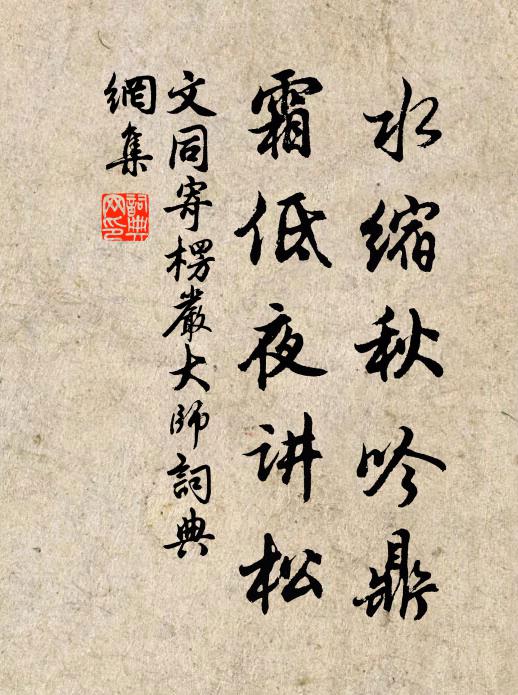 水缩秋吟鼎
霜低夜讲松
文同寄楞嚴大师詞典
網集
詞典网印